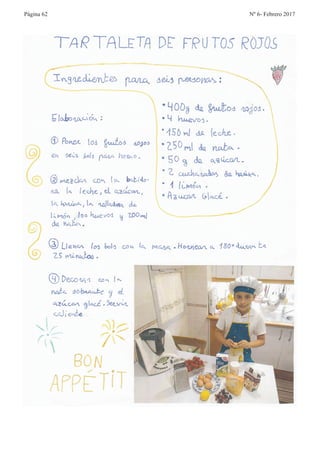 Página 62 Nº 6- Febrero 2017
TARTALETA DE FRUTOS ROJOS
Ingredientes para seis personas:
• 400g de frutos rojos.
• 4 huevos.
• 150 ml de leche.
• 250 ml de nata.
• 50 g de azúcar.
• 2 cucharadas de harina.
• 1 limón.
• Azúcar glacé.
Elaboración:
① Poner los frutos rojos
en seis bols para horno.
② mezclar con la batido-
ra la leche, el azúcar,
la harina, la ralladura de
limón, los huevos y 200ml
de nata.
③ Llenar los bols con la masa. Hornear a 180º durante
25 minutos.
④ Decorar con la
nata sobrante y el
azúcar glacé. Servir
caliente.
BON
APPÉTIT